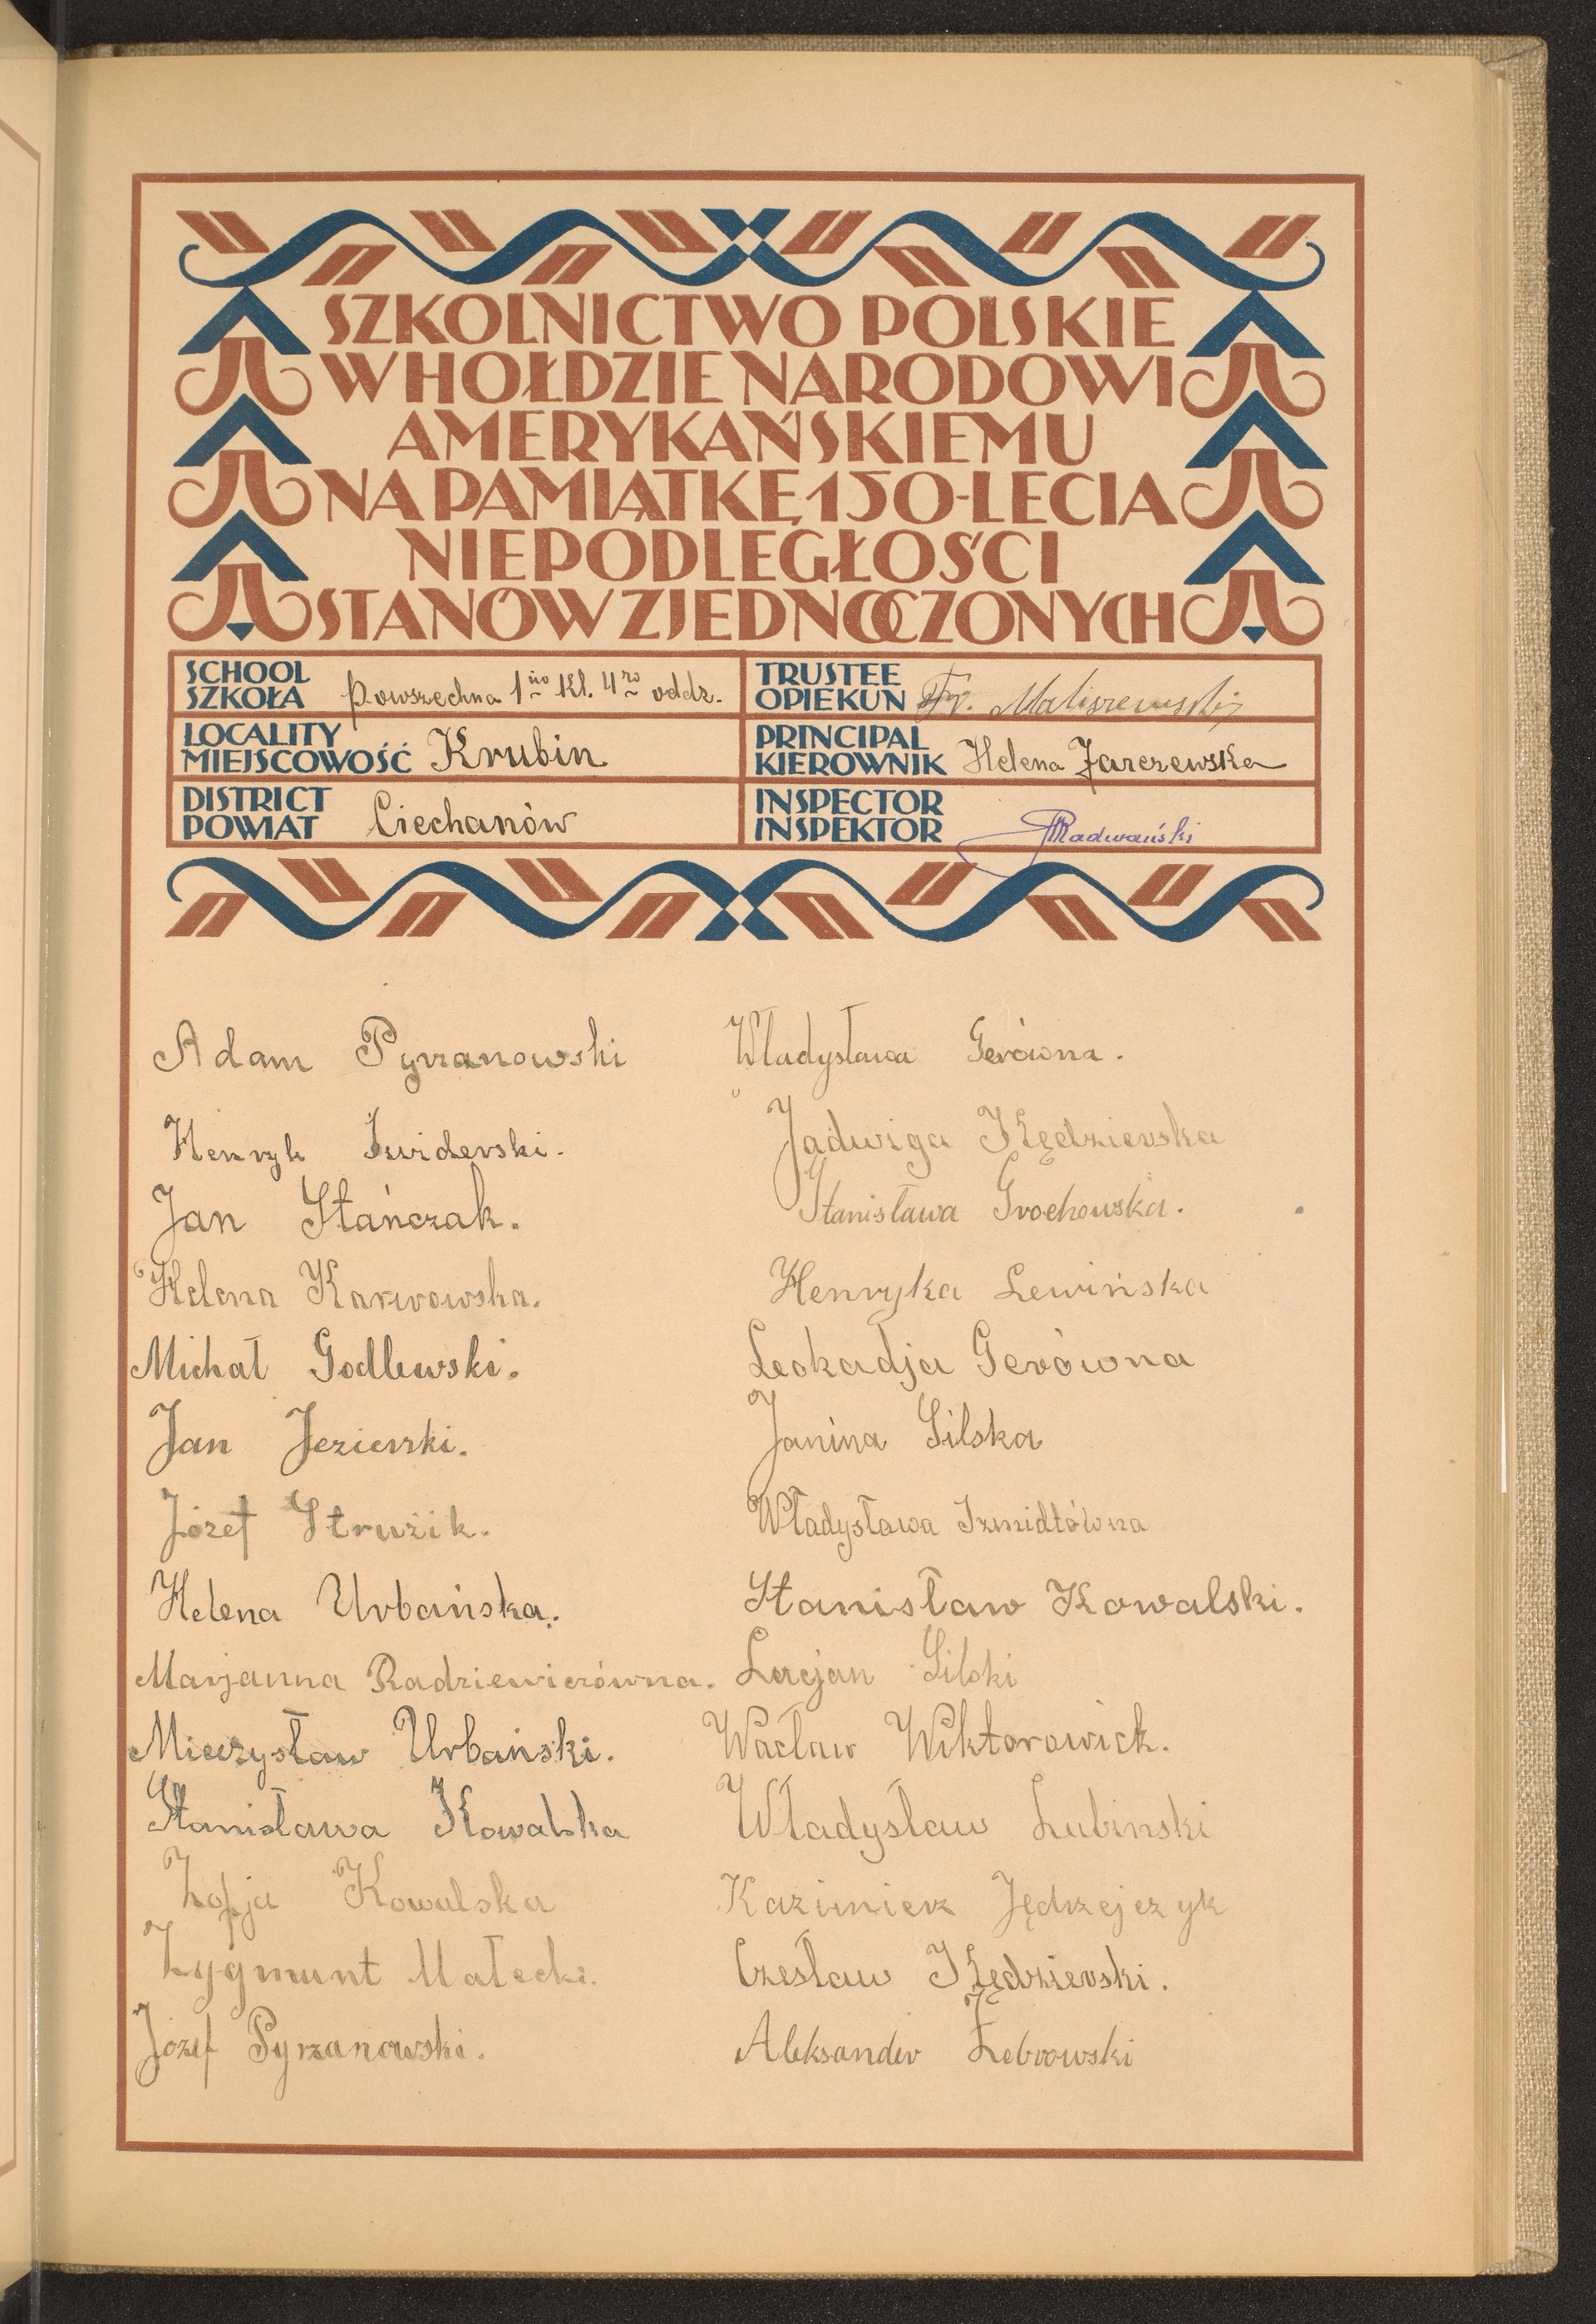 SZKOLNICTWO POLSKIE
W HOŁDZIE NARODOWI
AMERYKAŃSKIEMU
NA PAMIĄTKĘ 150-LECIA
NIEPODLEGŁOŚCI
STANÓW ZJEDNOCZONYCH
SCHOOL
SZKOŁA powszechna 1no kl. 4ro oddz.
TRUSTEE
OPIEKUN Fr. Maliszewski
LOCALITY
MIEJSCOWOŚĆ Krubin
PRINCIPAL
KIEROWNIK Helena Jarczewska
DISTRICT
POWIAT Ciechanów
INSPECTOR
INSPEKTOR Radwański
Adam Pyrzanowski
Henryk Świderski.
Jan Stańczak.
Helena Karwowska.
Michał Godlewski.
Jan Jezierski.
Józef Strużik.
Helena Urbańska.
Marjanna Radziewiczówna.
Mieczysław Urbański.
Stanisława Kowalska
Zofja Kowalska
Zygmunt Małecki.
Józef Pyrzanowski.
Władysława Gerówna.
Jadwiga Kędzierska
Stanisława Grochowska.
Henryka Lewińska
Leokadja Gerówna
Janina Silska
Władysława Szmidtówna
Stanisław Kowalski.
Lucjan Silski
Wacław Wiktorowick.
Władysław Lubinski
Kazimierz Jędrzejczyk
Czesław Kędzierski.
Aleksander Żebrowski